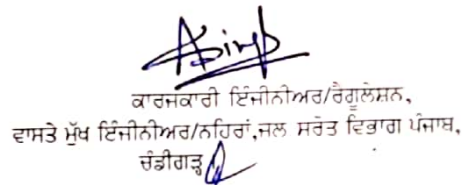 ਕਾਰਜਕਾਰੀ ਇੰਜੀਨੀਅਰ/ਰੈਗੂਲੇਸ਼ਨ,
ਵਾਸਤੇ ਮੁੱਖ ਇੰਜੀਨੀਅਰ/ਨਹਿਰਾਂ,ਜਲ ਸਰੋਤ ਵਿਭਾਗ ਪੰਜਾਬ,
ਚੰਡੀਗੜ੍ਹ